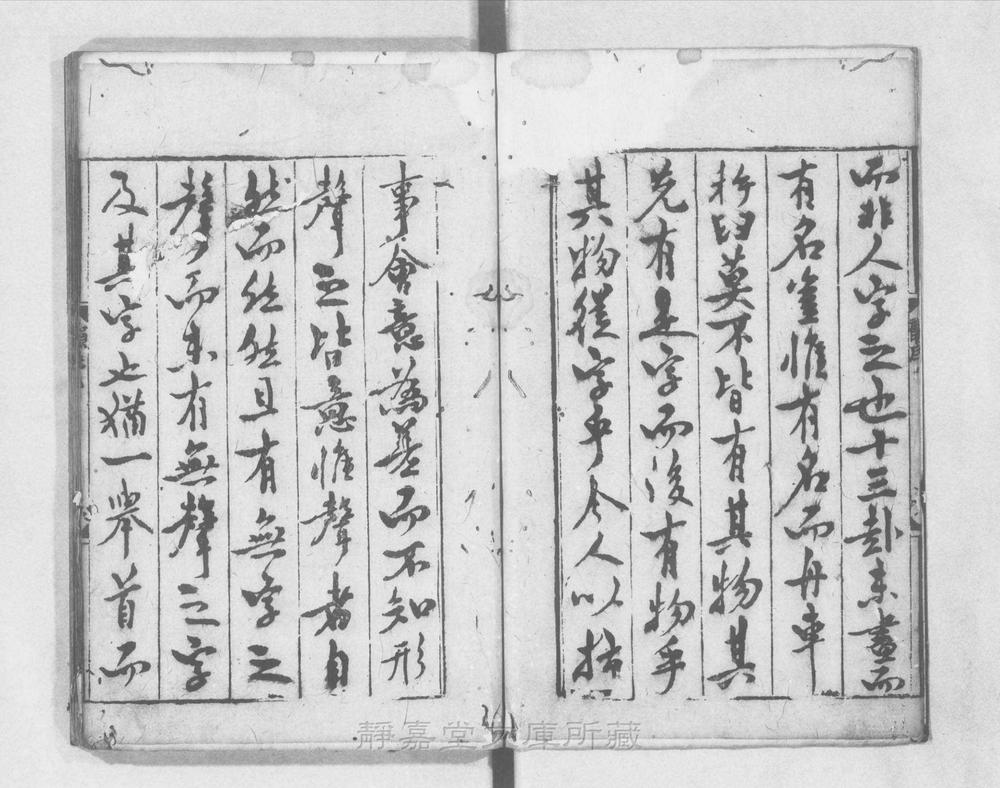 而非人字之也十三卦未畫而
有名惟有名而舟車
杵臼莫不皆有其物其
先有是字而後有物乎
其物從字乎今人以指
事會意為差而不知形
聲之皆意惟聲者自
然而然然且有無字之
聲而未有無聲之字
及其字也猶一舉首而
靜嘉堂文庫所藏